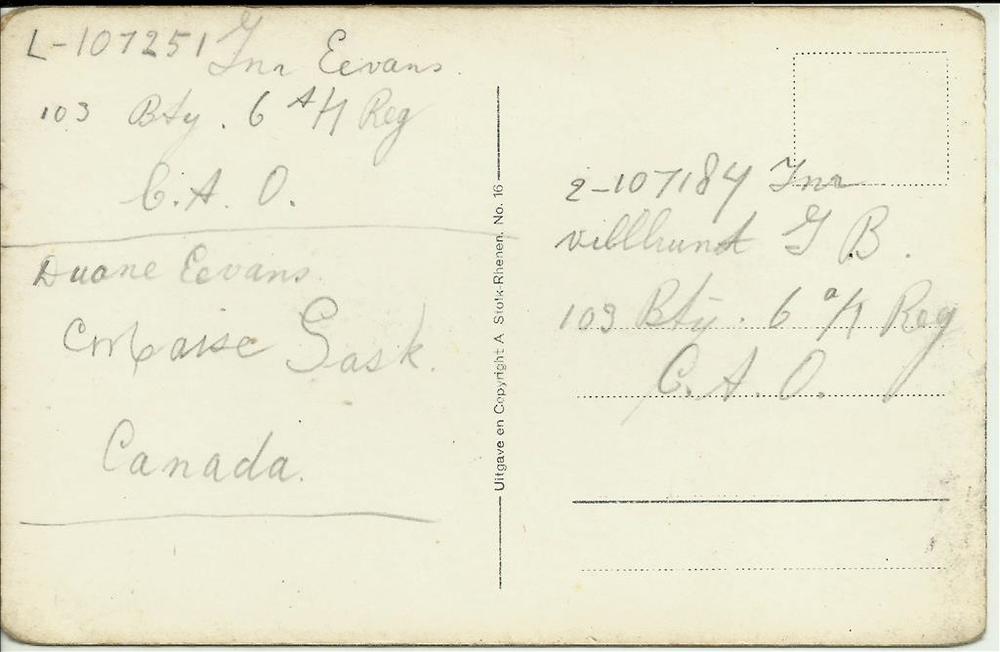 L-107251 Gnr Eevans
103 Bty. 6 A/4 Reg
C.A.O.
Duane Eevans
Sask.
Canada.
Uitgave en Copyright A Stolk-Rhenen. No. 16
2-107184 Gnr
G B.
103 Bty. 6 a/4 Reg
C.A.O.